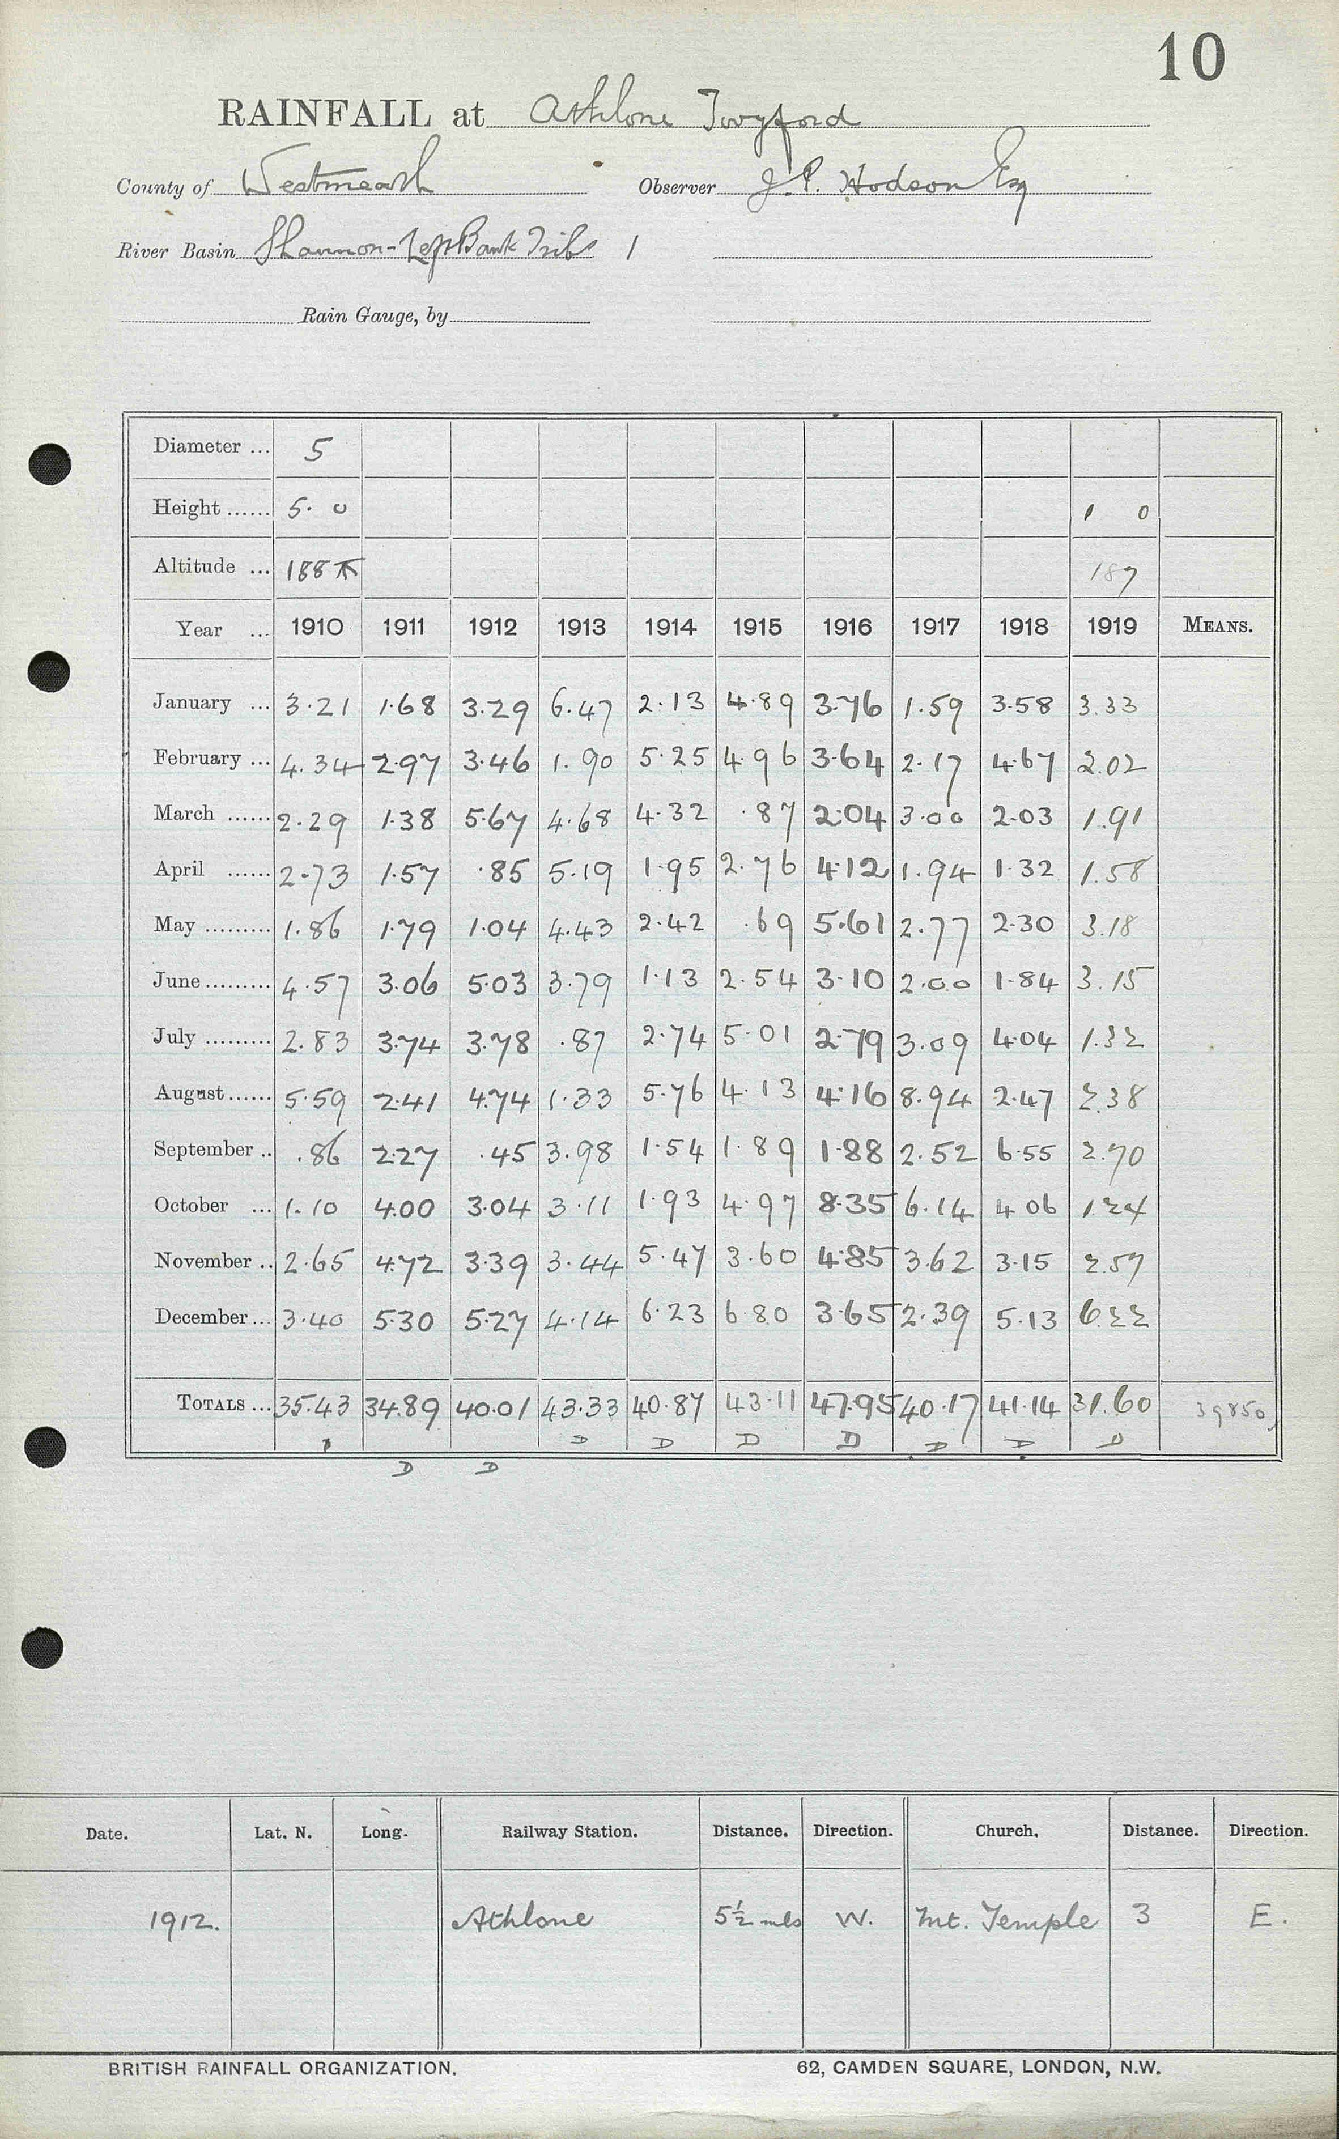 10
RAINFALL at Athlone Twyford
County of Westmeath Observer J. P. Hodson Esq
River Basin Shannon-Left Bank Tribs 1
Rain Gauge, by
Diameter ... 5
Height ...... 5. 0 1 0
Altitude ... 188 ⊼ 187
Year ... 1910 1911 1912 1913 1914 1915 1916 1917 1918 1919 MEANS.
January ... 3.21 1.68 3.29 6.47 2.13 4.89 3.76 1.59 3.58 3.33
February ... 4.34 2.97 3.46 1.90 5.25 4.96 3.64 2.17 4.67 2.02
March ...... 2.29 1.38 5.67 4.68 4.32 .87 2.04 3.00 2.03 1.91
April ...... 2.73 1.57 .85 5.19 1.95 2.76 4.12 1.94 1.32 1.58
May ......... 1.86 1.79 1.04 4.43 2.42 .69 5.61 2.77 2.30 3.18
June ......... 4.57 3.06 5.03 3.79 1.13 2.54 3.10 2.00 1.84 3.15
July ......... 2.83 3.74 3.78 .87 2.74 5.01 2.79 3.09 4.04 1.32
August ...... 5.59 2.41 4.74 1.33 5.76 4.13 4.16 8.94 2.47 2.38
September .. .86 2.27 .45 3.98 1.54 1.89 1.88 2.52 6.55 2.70
October ... 1.10 4.00 3.04 3.11 1.93 4.97 8.35 6.14 4.06 1.24
November .. 2.65 4.72 3.39 3.44 5.47 3.60 4.85 3.62 3.15 2.57
December ... 3.40 5.30 5.27 4.14 6.23 6.80 3.65 2.39 5.13 6.22
TOTALS ... 35.43 34.89 40.01 43.33 40.87 43.11 47.95 40.17 41.14 31.60 39850
D D D D D D D D
D D
Date. Lat. N. Long. Railway Station. Distance. Direction. Church. Distance. Direction.
1912. Athlone 5½ mls W. Mt. Temple 3 E.
BRITISH RAINFALL ORGANIZATION. 62, CAMDEN SQUARE, LONDON, N.W.